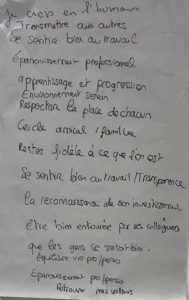 Je crois en l'humain
Transmettre aux autres
Se sentir bien au travail
épanouissement professionnel
apprentissage et progression
Environnement serein
Respecter la place de chacun
Cercle amical / famille
Rester fidèle à ce que l'on est
Se sentir bien au travail / Transparence
la reconnaissance de son investissement
être bien entourée par ses collègues
que les gens se sentent bien
équilibre vie pro/perso
épanouissement pro/perso
Retrouver mes valeurs